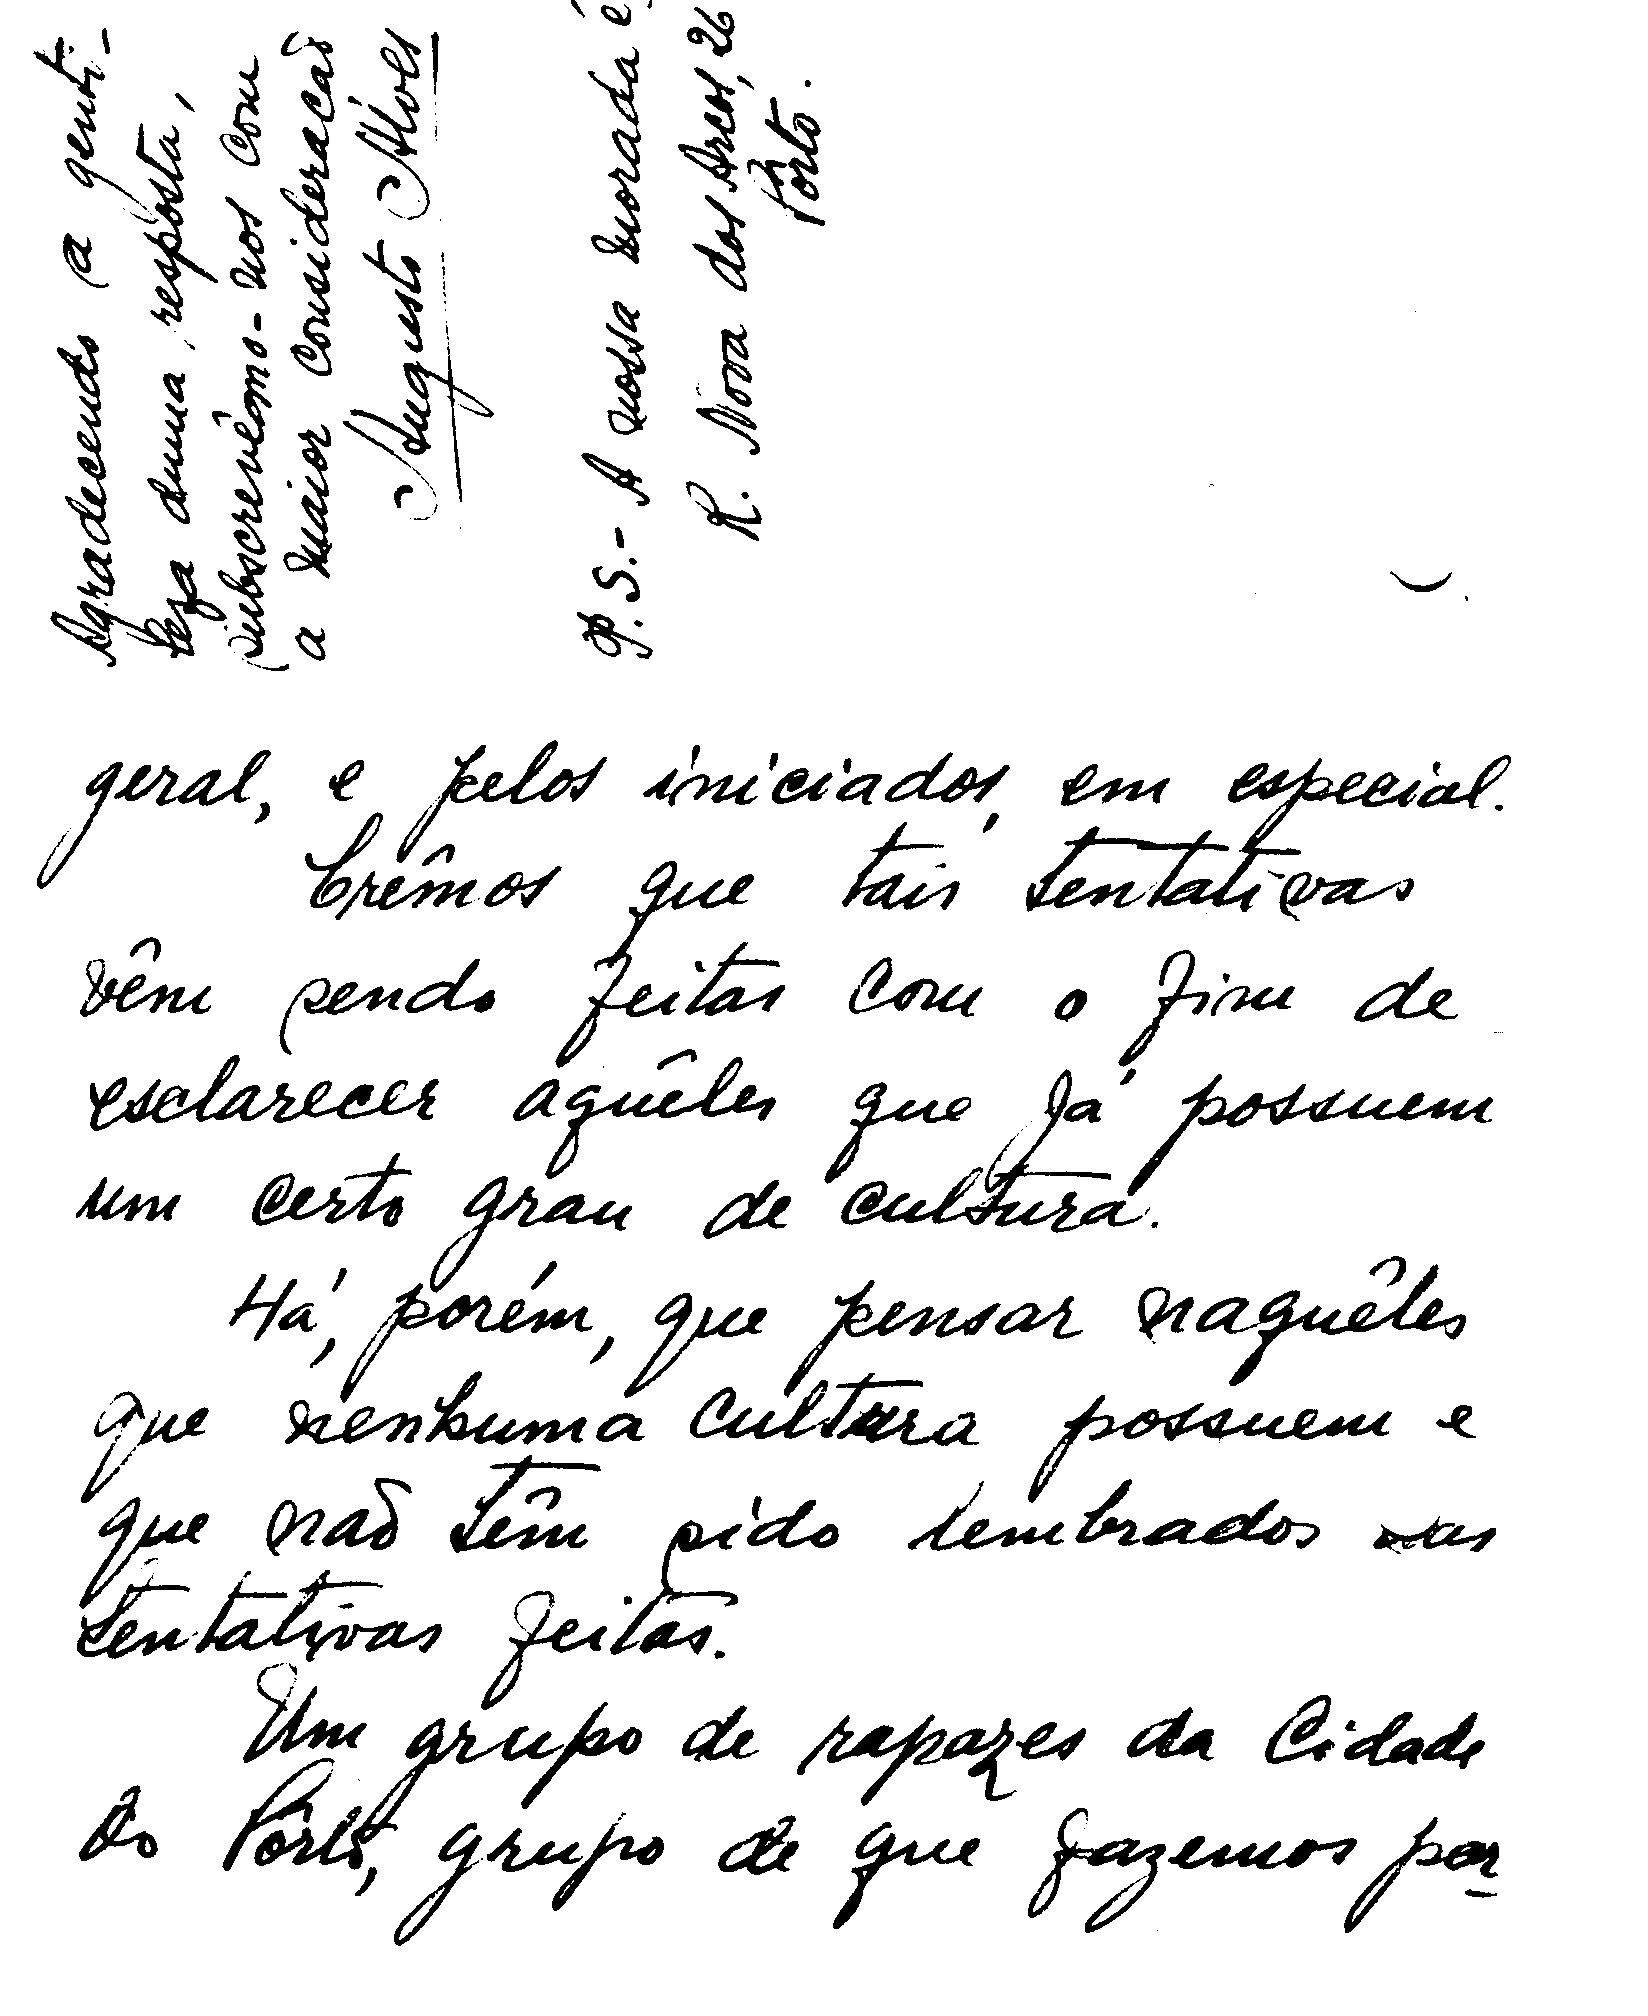 Agradecendo a genti-
leza duma resposta,
subscrevêmo-nos com
a maior consideração
Augusto Alves
P.S.- A nossa morada é:
R. Nova dos Arcos, 26
Porto.
geral, e pelos iniciados, em especial.
Crêmos que tais tentativas
vêm sendo feitas com o fim de
esclarecer aquêles que já possuem
um certo grau de cultura.
Há, porém, que pensar naquêles
que nenhuma cultura possuem e
que não têm sido lembrados nas
tentativas feitas.
Um grupo de rapazes da Cidade
do Pôrto, grupo de que fazemos par-